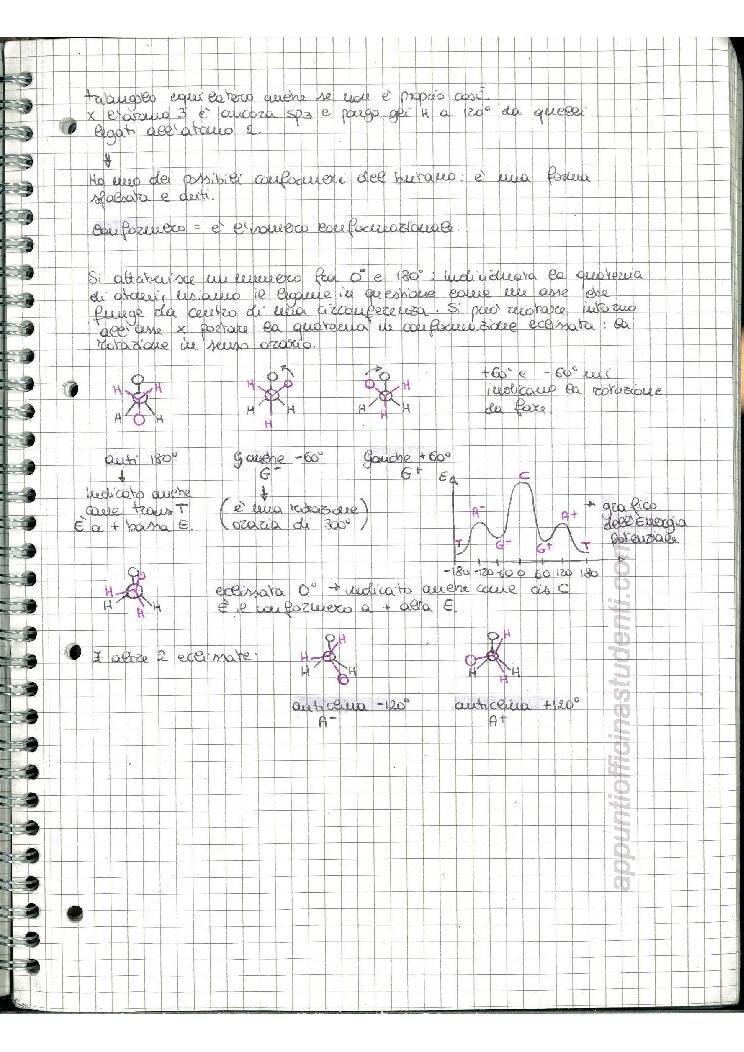 triangolo equilatero anche se non è proprio così.
x l'atomo 3 è ancora sp3 e pongo gli H a 120° da quelli
legati all'atomo 2.
↓
Ho uno dei possibili conformeri del butano: è una forma
sfalsata e anti.
conformero = è l'isomero conformazionale.
Si attribuisce un numero fra 0° e 180°: individuata la quaterna
di atomi, usiamo il legame in questione come un asse che
funge da centro di una circonferenza. Si può ruotare intorno
all'asse x portare la quaterna in conformazione eclissata: la
rotazione in senso orario.
+60° e -60° mi
indicano la rotazione
da fare.
H H H H
H H H H H H H H
anti 180° Gauche -60° Gauche +60°
G⁻ G⁺
↓ ↓
indicato anche
come trans T
È a + bassa E.
(è una rotazione
oraria di 300°)
E C
A⁻ A⁺
T G⁻ G⁺ T
-180 -120 -60 0 60 120 180
→ grafico
dell'Energia
Potenziale
H H H H
eclissata 0° → indicato anche come cis C
È il conformero a + alta E.
I altre 2 eclissate:
H H H H
H H H H
anticlina -120° anticlina +120°
A⁻ A⁺
appuntiofficinastudenti.com